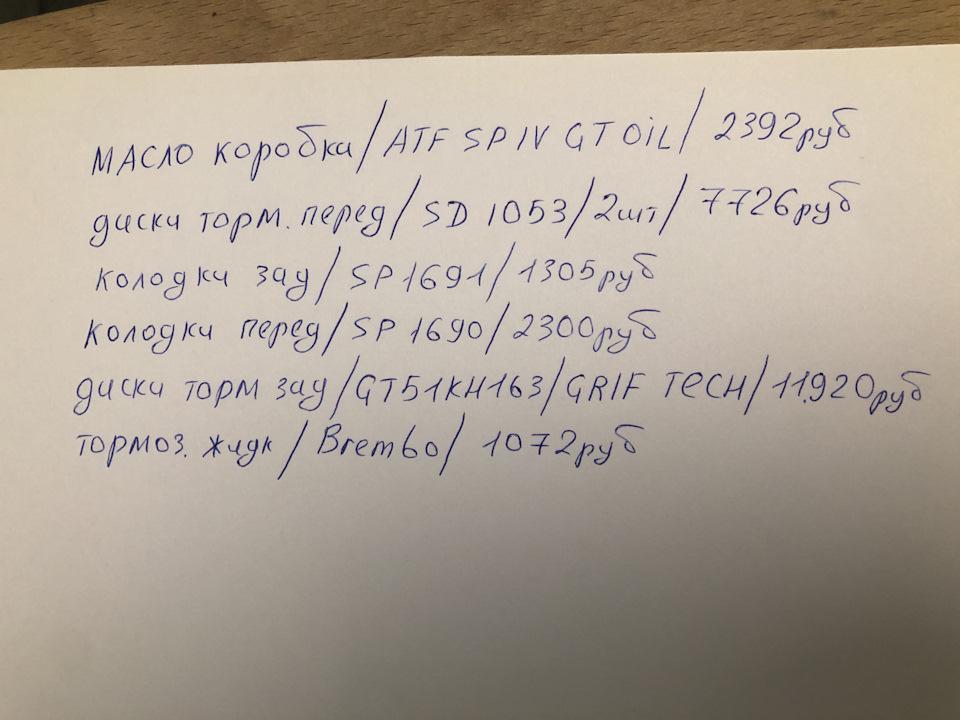 МАСЛО коробка/ATF SP IV GT OiL/ 2392руб
диски торм. перед/SD 1053/2шт/ 7726руб
колодки зад/SP1691/1305руб
колодки перед/SP 1690/2300руб
диски торм зад/GT51KH163/GRIF TeCH/11.920руб
тормоз. жидк/Brembo/ 1072руб